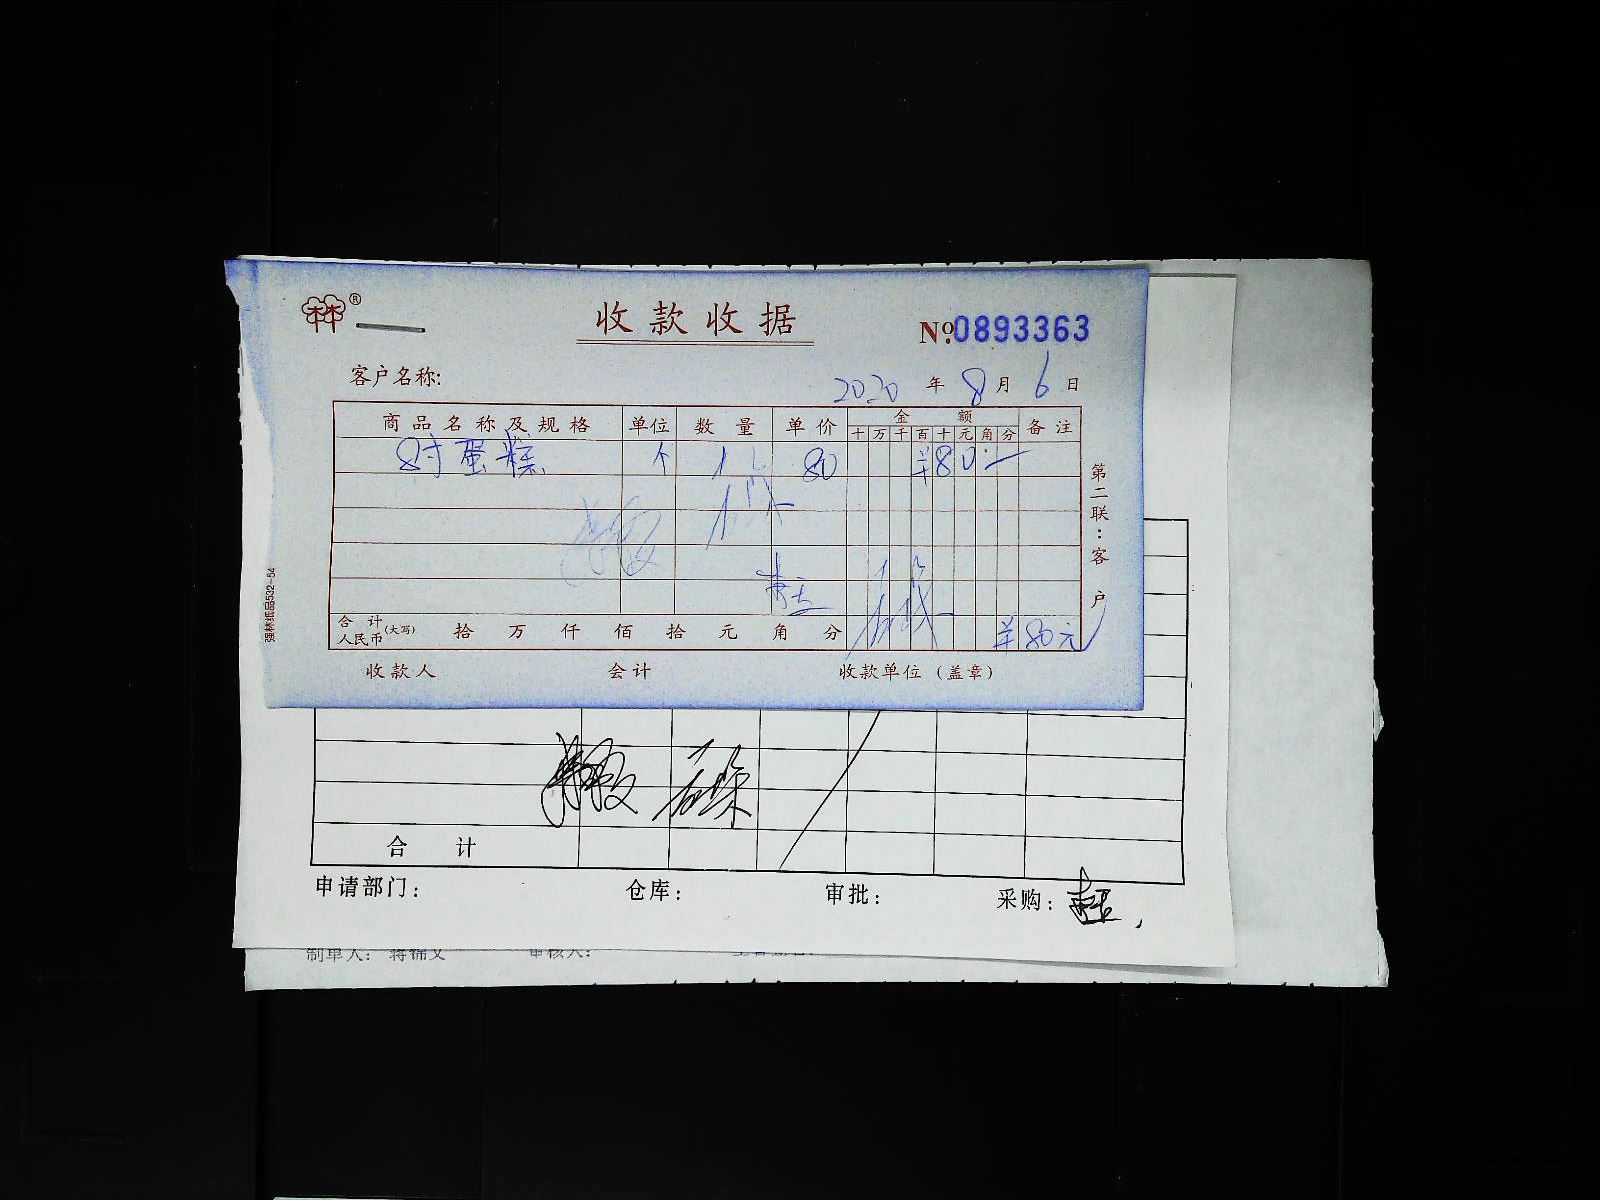 林®
收款收据
№:0893363
客户名称:
2020年8月6日
商品名称及规格 单位 数量 单价 金额 备注
十万千百十元角分
8寸蛋糕 个 1 80 ¥80.—
第二联:客户
强林纸品532-54
合计人民币(大写) 拾 万 仟 佰 拾 元 角 分 ¥80元
收款人 会计 收款单位(盖章)
合计
申请部门: 仓库: 审批: 采购:
制单人: 蒋锦文 审核人: